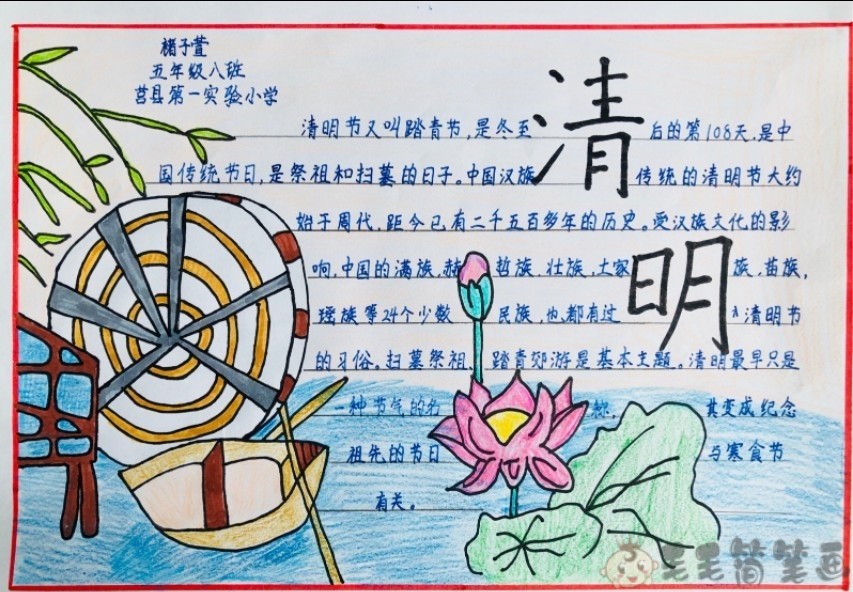 褚子萱
五年级八班
莒县第一实验小学
清明
清明节又叫踏青节,是冬至后的第108天,是中
国传统节日,是祭祖和扫墓的日子。中国汉族传统的清明节大约
始于周代,距今已有二千五百多年的历史。受汉族文化的影
响,中国的满族、赫哲族、壮族、土家族、苗族,
瑶族等24个少数民族,也都有过清明节
的习俗。扫墓祭祖、踏青郊游是基本主题。清明最早只是
一种节气的名称,其变成纪念
祖先的节日与寒食节
有关。
毛毛简笔画